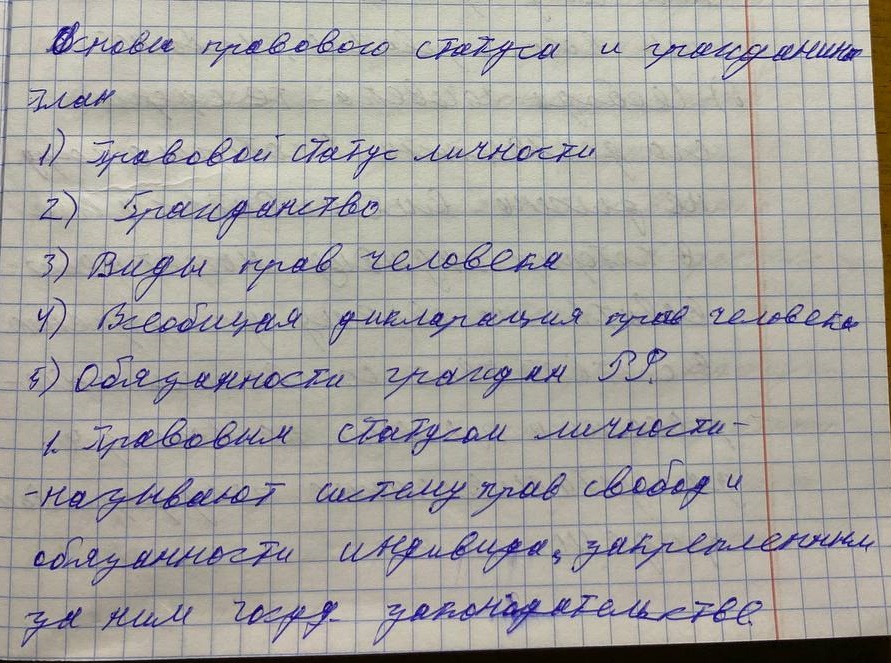 Основы правового статуса и гражданина
План
1) Правовой статус личности
2) Гражданство
3) Виды прав человека
4) Всеобщая дикларация прав человека
5) Обязанности граждан РФ.
1. Правовым статусом личности-
-называют систему прав свобод и
обязанности индивида, закрепленным
за ним госуд. законодательстве.